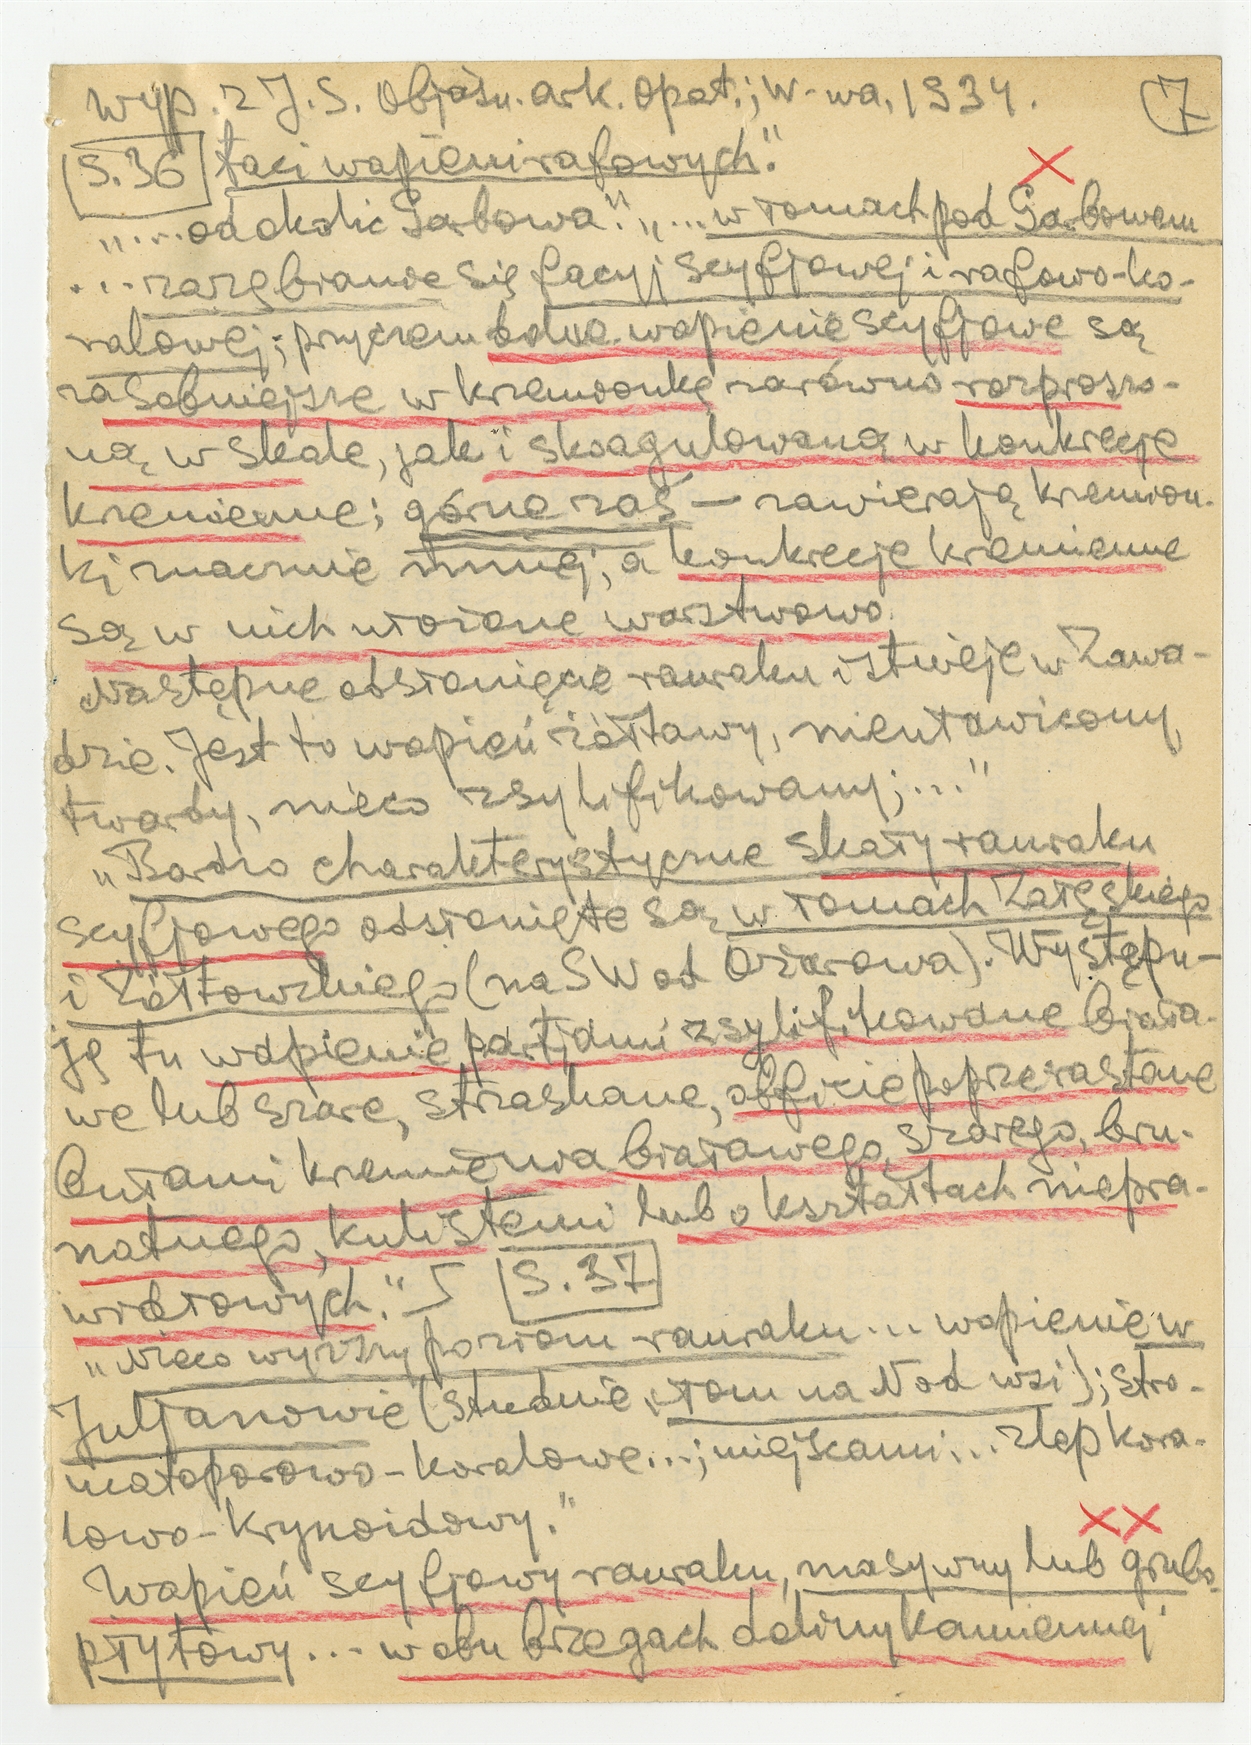 Wyp. z J. S. Objaśn. ark. Opat.; W-wa, 1934. 7
S. 36 taci wapieni rafowych."
"...od okolic Garbowa". "...w łomach pod Garbowem
...zazębianie się facyj scyfjowej i rafowo-ko-
ralowej; przyczem dolne wapienie scyfjowe są
zasobniejsze w krzemionkę zarówno rozproszo-
ną w skale, jak i skoagulowaną w konkrecje
krzemienne; górne zaś – zawierają krzemion-
ki znacznie mniej, a konkrecje krzemienne
są w nich ułożone warstwowo.
Następne odsłonięcie rauraku istnieje w Zawa-
dzie. Jest to wapień żółtawy, nieuławicony,
twardy, nieco zsylifikowany;..."
"Bardzo charakterystyczne skały rauraku
scyfjowego odsłonięte są w łomach Załęskiego
i Żółtowskiego (na SW od Ożarowa). Występu-
ję tu wapienie partjami zsylifikowane biała-
we lub szare, strzaskane, obficie poprzerastane
bułami krzemienia białawego, szarego, bru-
natnego, kulistemi lub o kształtach niepra-
widłowych." S. 37
"Nieco wyższy poziom rauraku... wapienie w
Juljanowie (studnie i łom na N od wsi); stro-
matoporowo-koralowe...; miejscami... zlep kora-
lowo-krynoidowy."
Wapień scyfjowy rauraku, masywny lub grubo-
płytowy... w obu brzegach doliny Kamiennej